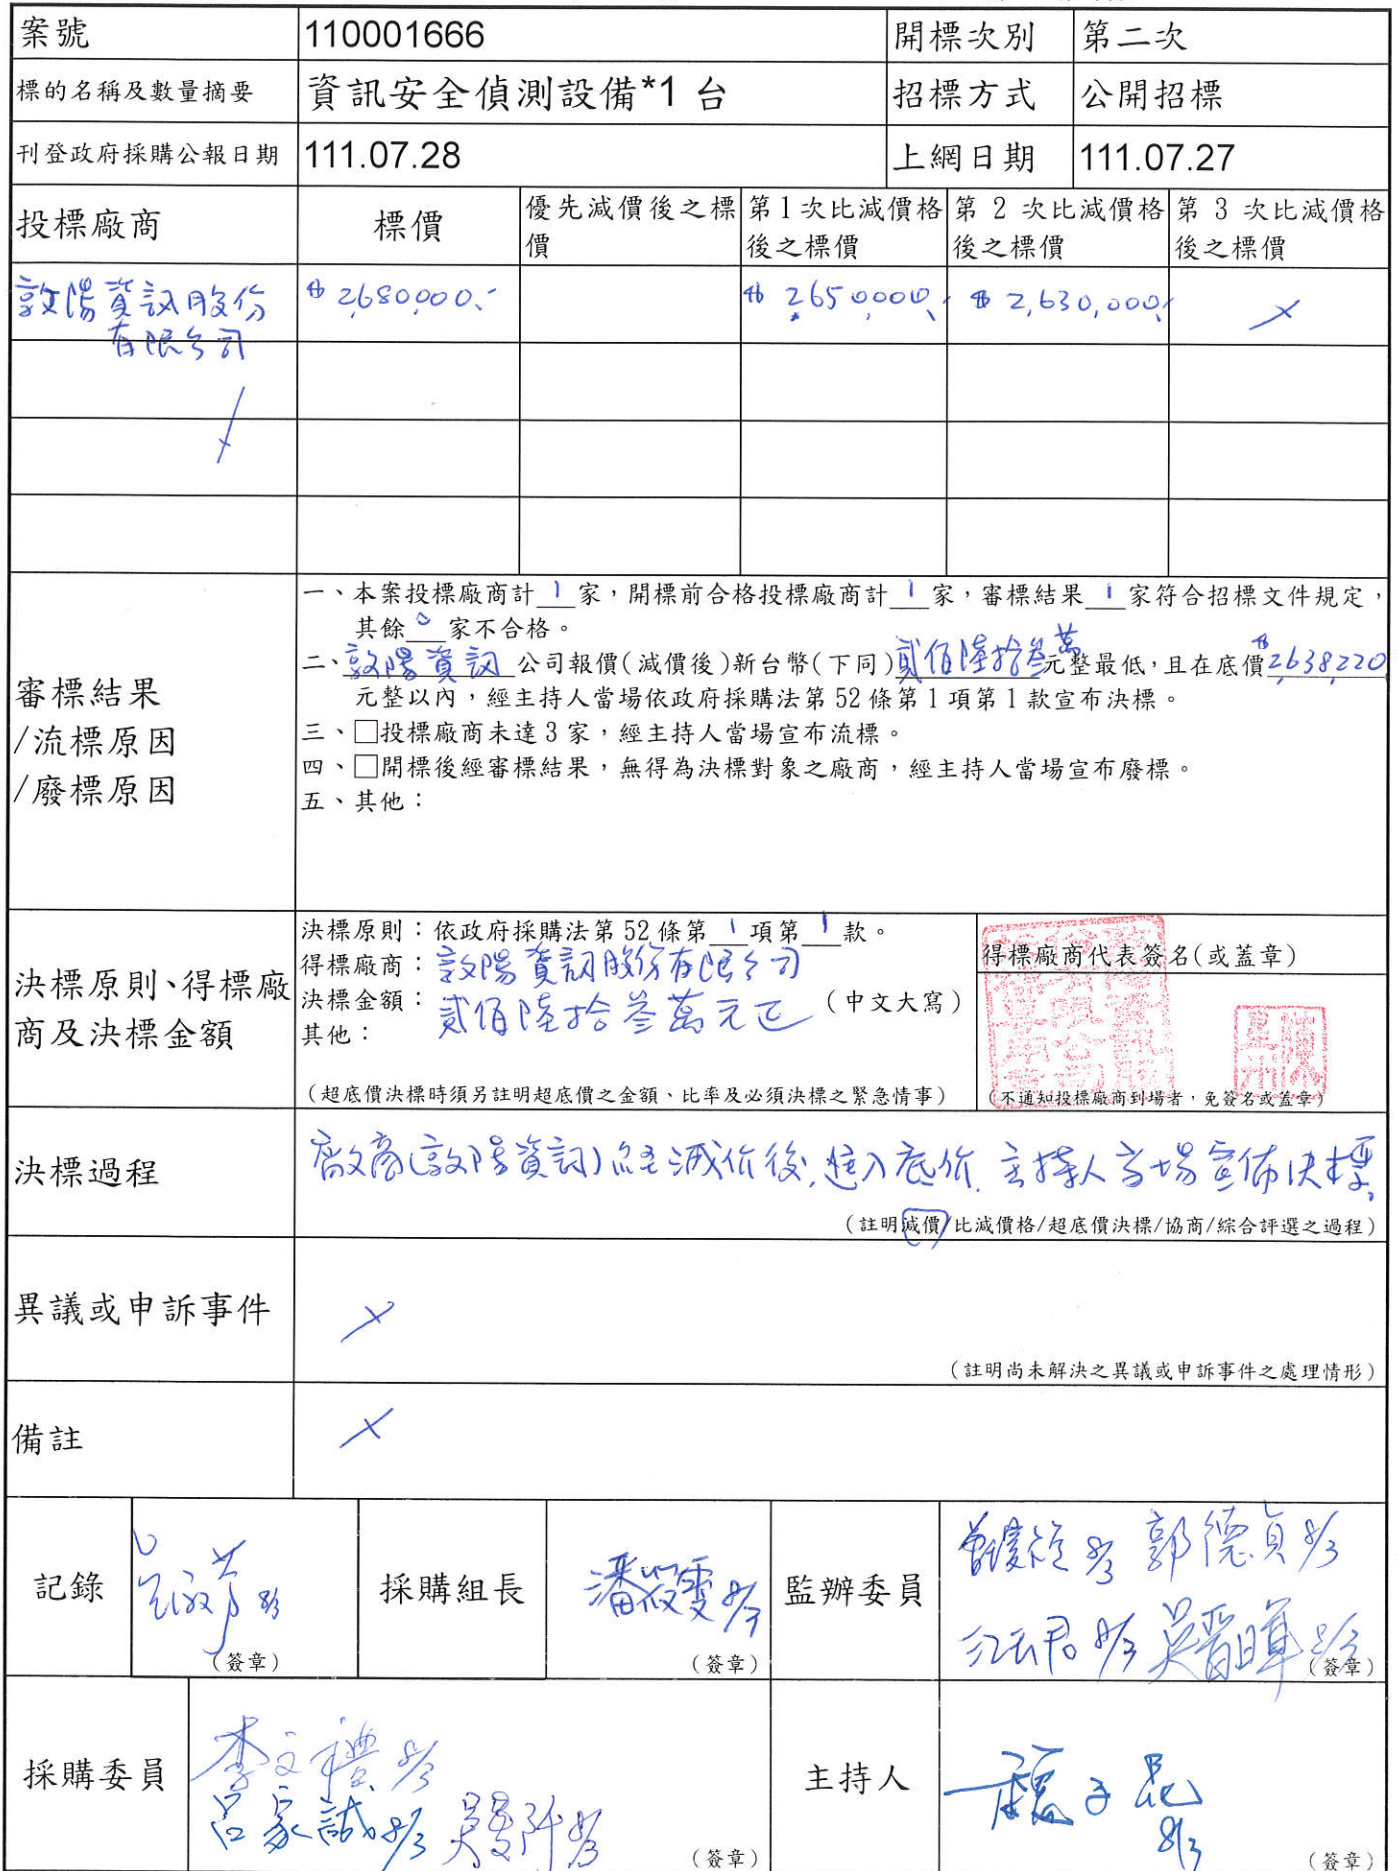 案號 110001666 開標次別 第二次
標的名稱及數量摘要 資訊安全偵測設備*1 台 招標方式 公開招標
刊登政府採購公報日期 111.07.28 上網日期 111.07.27
投標廠商 標價 優先減價後之標價 第1次比減價格後之標價 第 2 次比減價格後之標價 第 3 次比減價格後之標價
敦陽資訊股份有限公司 $2,680,000.- $2,650,000 $2,630,000
審標結果
/流標原因
/廢標原因
一、本案投標廠商計1家，開標前合格投標廠商計1家，審標結果1家符合招標文件規定，
其餘0家不合格。
二、敦陽資訊公司報價(減價後)新台幣(下同)貳佰陸拾叁萬元整最低，且在底價$2,638,220
元整以內，經主持人當場依政府採購法第 52 條第 1 項第 1 款宣布決標。
三、□投標廠商未達 3 家，經主持人當場宣布流標。
四、□開標後經審標結果，無得為決標對象之廠商，經主持人當場宣布廢標。
五、其他：
決標原則、得標廠
商及決標金額
決標原則：依政府採購法第 52 條第1項第1款。
得標廠商：敦陽資訊股份有限公司
決標金額：貳佰陸拾叁萬元正（中文大寫）
其他：
（超底價決標時須另註明超底價之金額、比率及必須決標之緊急情事）
得標廠商代表簽名(或蓋章)
（不通知投標廠商到場者，免簽名或蓋章）
決標過程
廠商(敦陽資訊)經減价後,進入底价,主持人當場宣佈決標。
（註明減價/比減價格/超底價決標/協商/綜合評選之過程）
異議或申訴事件
（註明尚未解決之異議或申訴事件之處理情形）
備註
記錄 （簽章） 採購組長 潘筱雯 （簽章） 監辦委員 郭德貞 8/3
吳晉暉 （簽章）
採購委員 李文禮 8/3
呂家誠 8/3 （簽章）
主持人 8/3 （簽章）